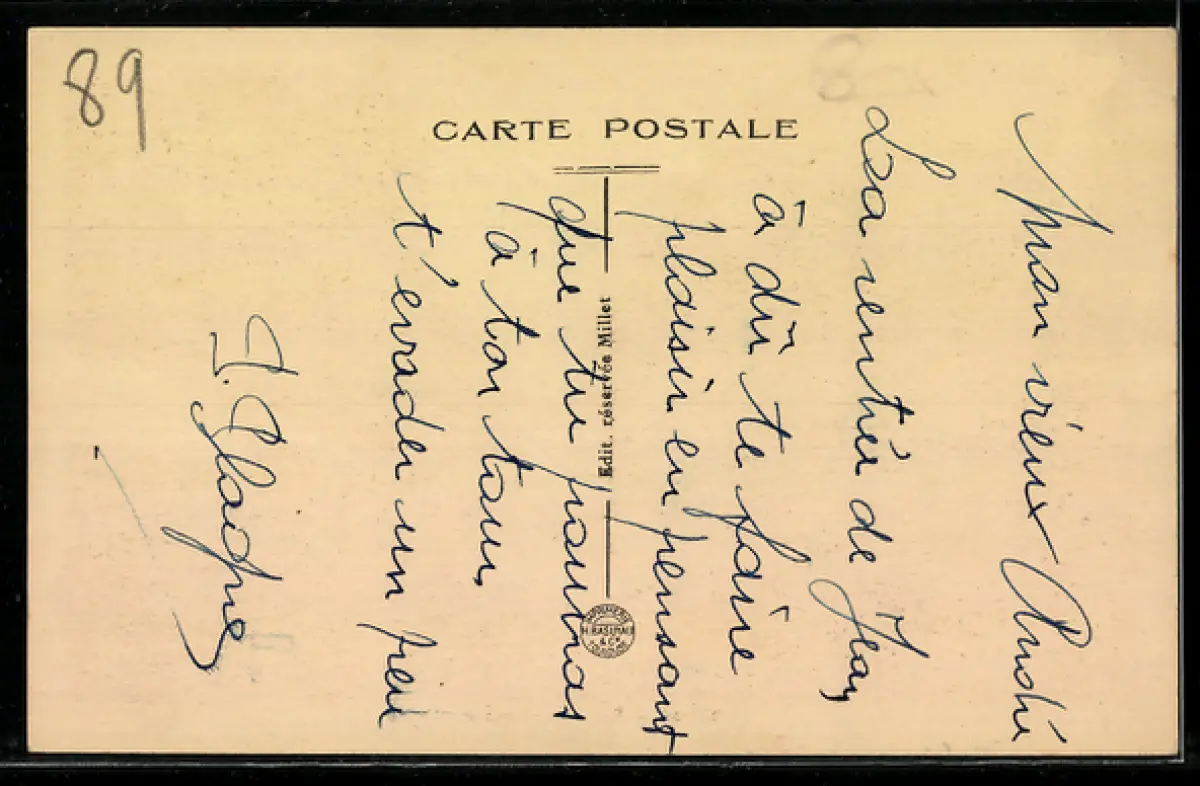 89
CARTE POSTALE
Mon vieux André
La rentrée de Jean
a dû te faire
plaisir en pensant
que tu pourras
à ton tour
t'evader un peu
J.
Edit. réservée Millet
IMPRIMERIE
H. BASUYAU
& Cie
TOULOUSE